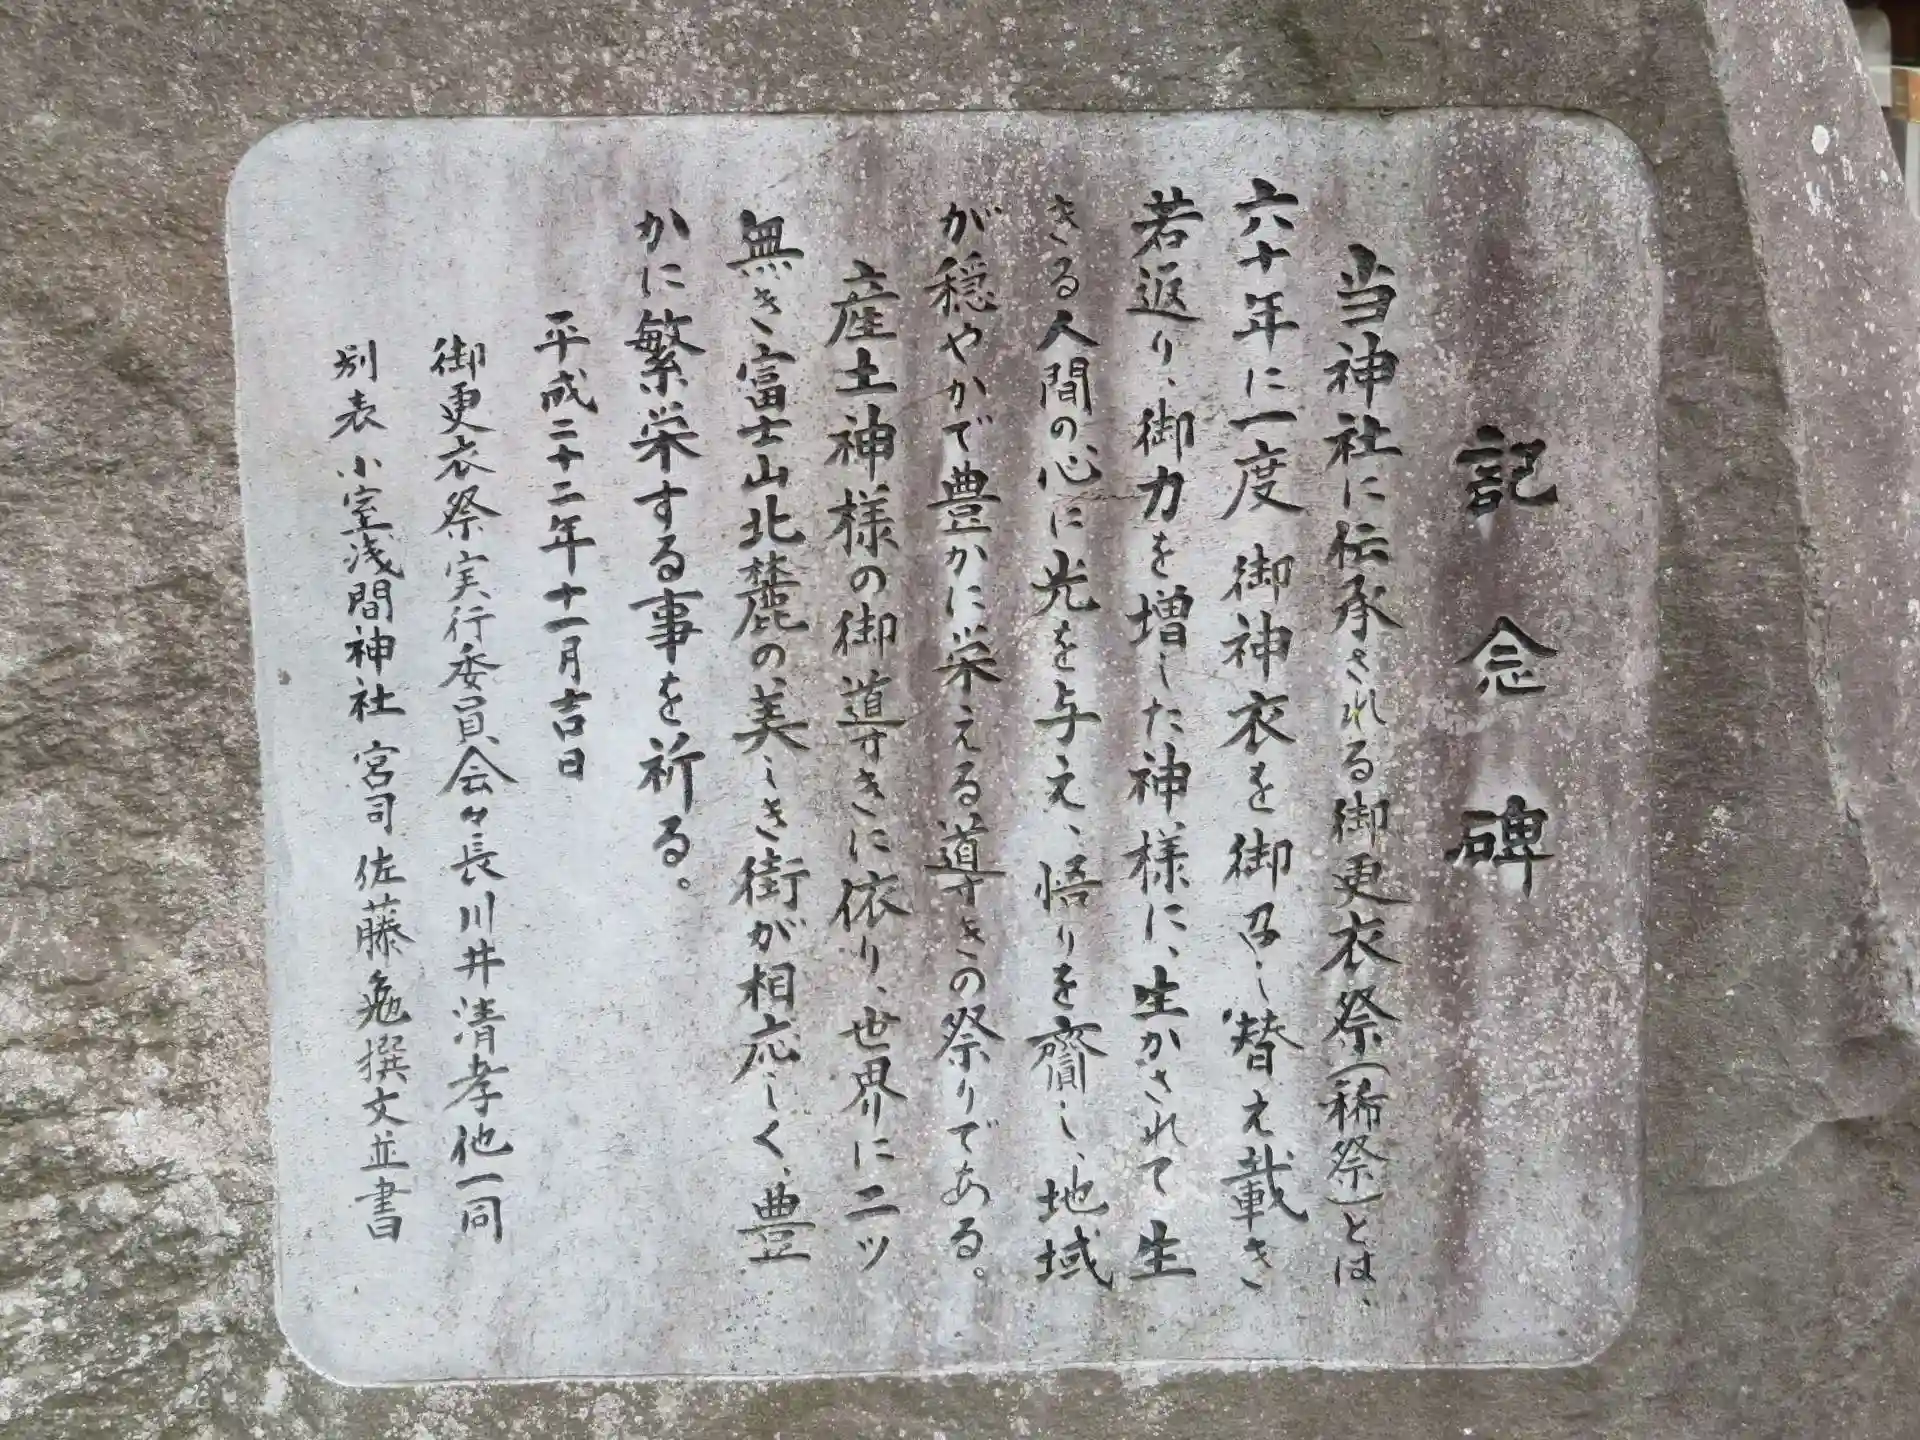 記念碑
当神社に伝承される御更衣祭(稀祭)とは、
六十年に一度御神衣を御召し替え載き
若返り、御力を増した神様に、生かされて生
きる人間の心に光を与え、悟りを齎し、地域
が穏やかで豊かに栄える導きの祭りである。
産土神様の御導きに依り、世界に二ッ
無き富士山北麓の美しき街が相応しく、豊
かに繁栄する事を祈る。
平成二十二年十一月吉日
御更衣祭実行委員会々長川井清孝他一同
別表 小室浅間神社 宮司 佐藤 撰文並書